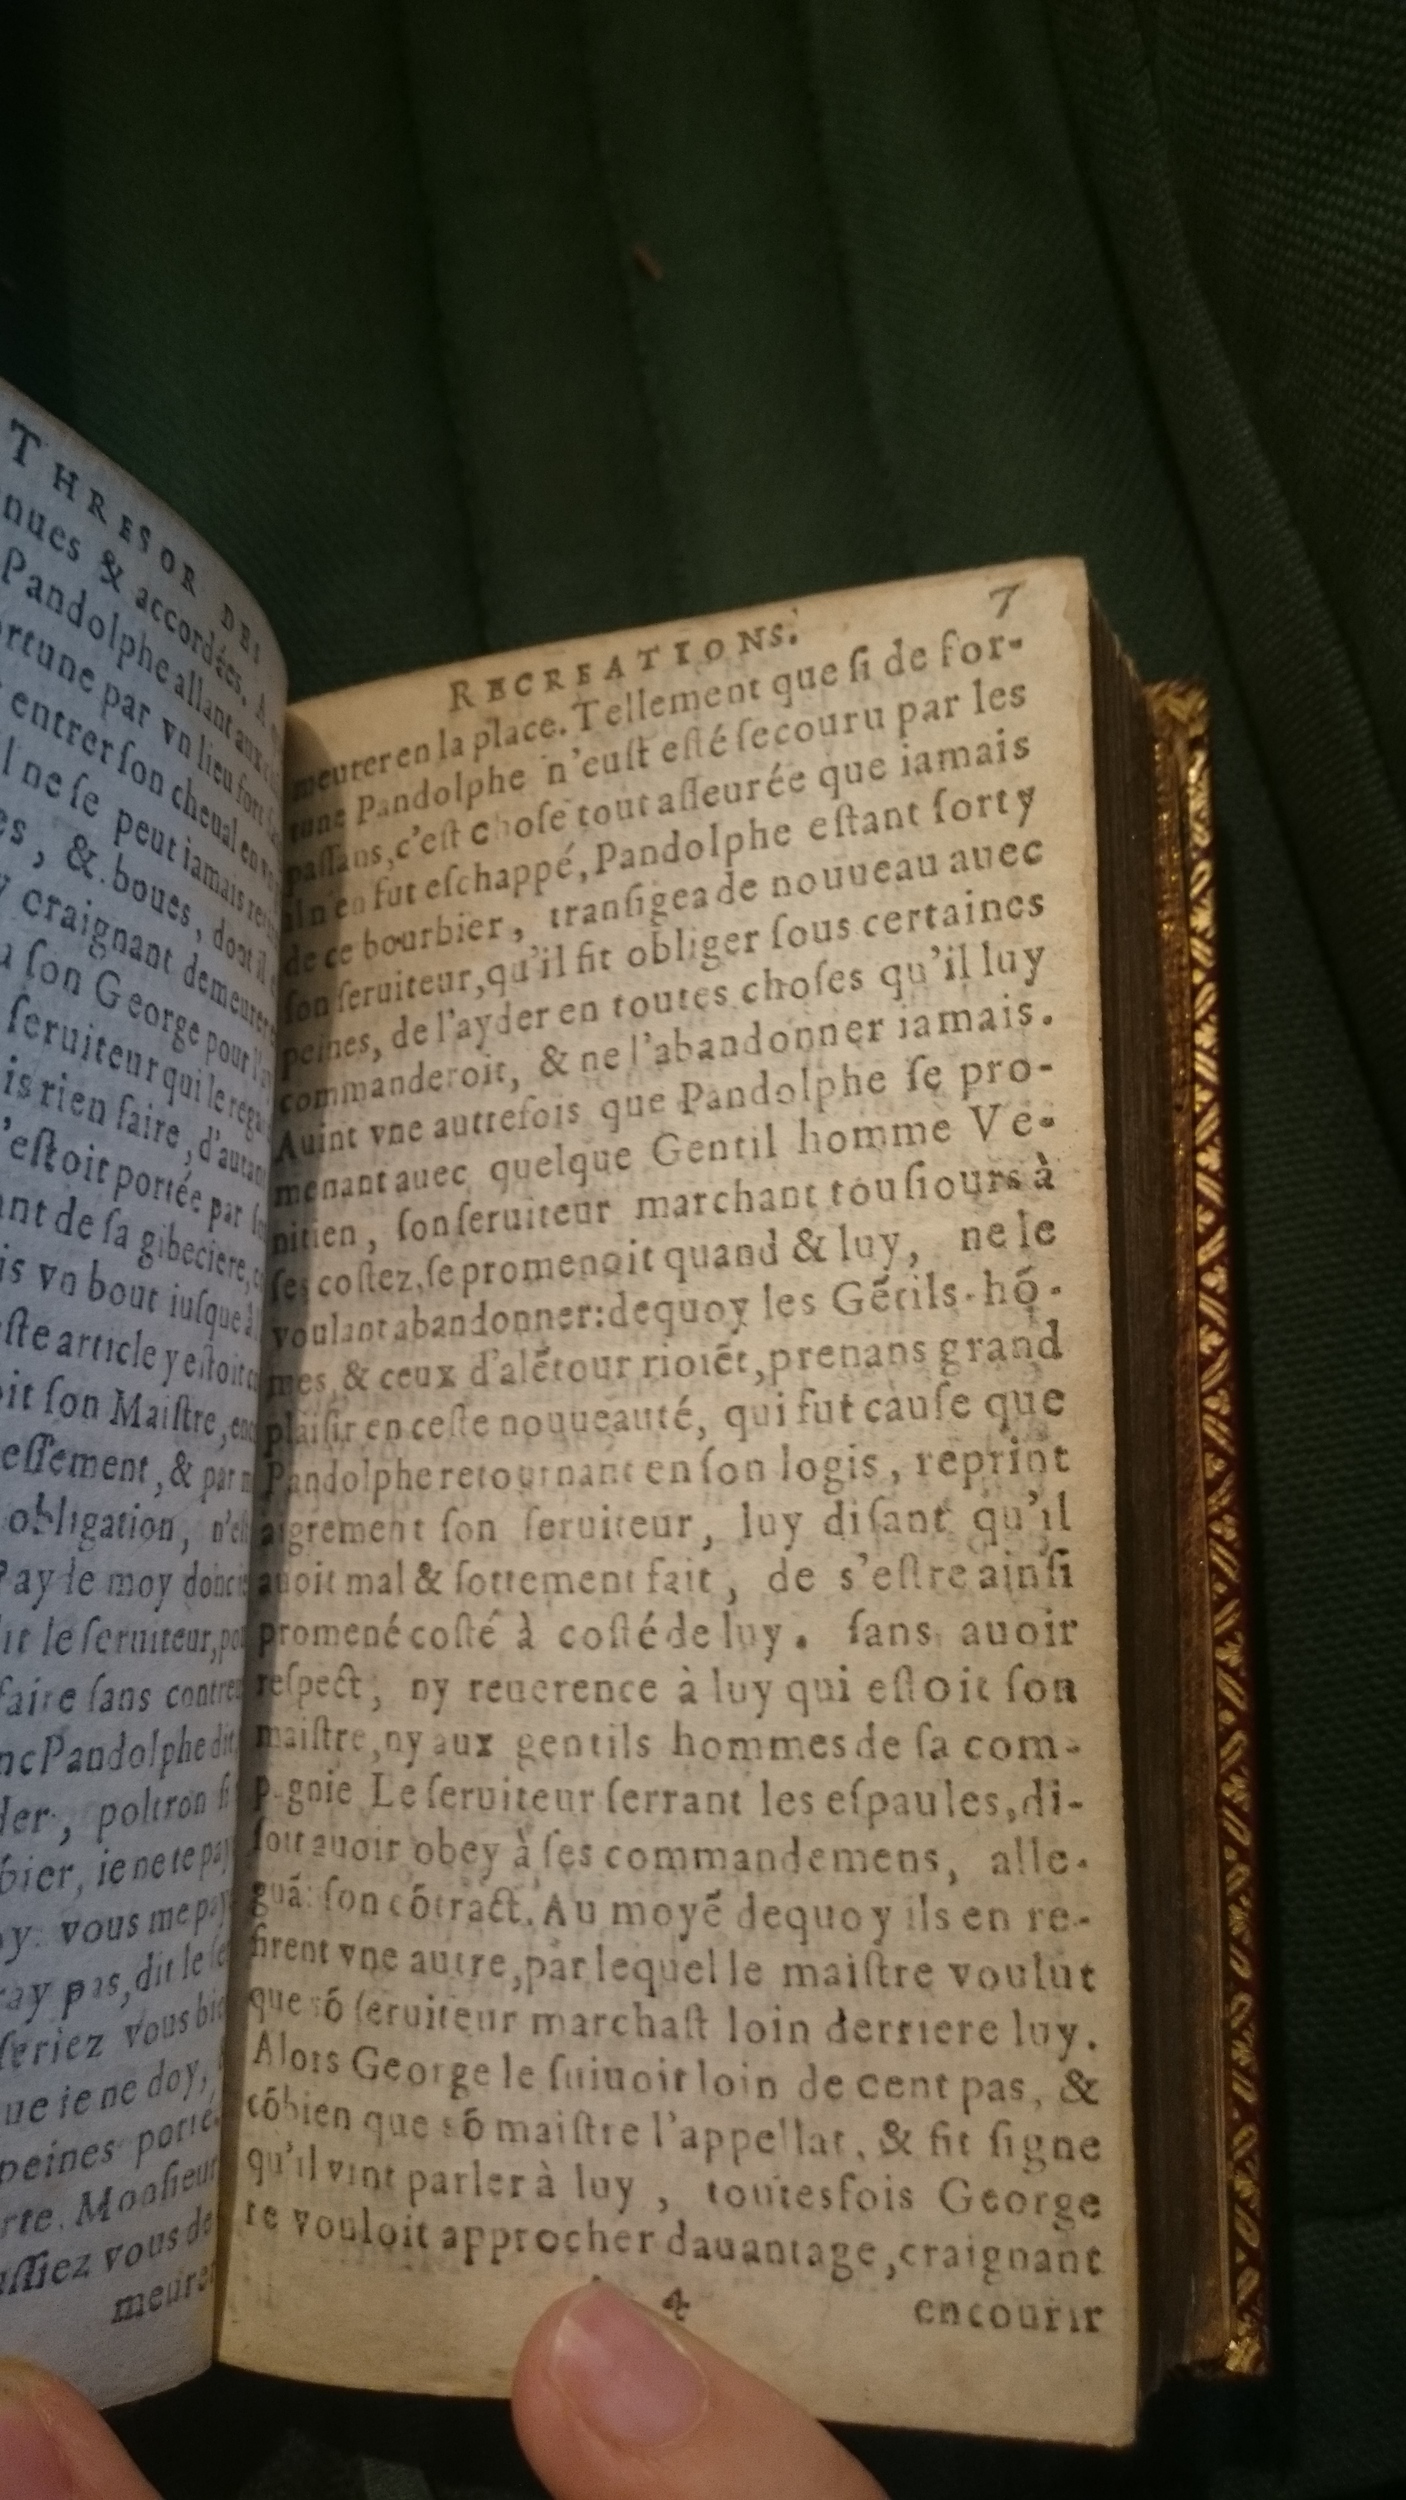 THRESOR DES
nues & accordées. A
Pandolphe allant aux
rtune par vn lieu fort
entrer ſon cheual en
l ne ſe peut iamais
es, & boues, dont il
y craignant demeurer
ſon George pour
ſeruiteur qui le
is rien faire, d'autant
'eſtoit portée par
ant de ſa gibeciere,
is vn bout iuſque à
ſte article y eſtoit
oit ſon Maiſtre,
eſſement, & par
obligation, n'eſt
Pay le moy donc
it le ſeruiteur,
faire ſans
nc Pandolphe dit
der, poltron
bier, ie ne te
oy. vous me
ray pas, dit le
ſeriez vous
ue ie ne doy,
peines
rte. Monſieur
uſſiez vous de
meurer
RECREATIONS. 7
meurer en la place. Tellement que ſi de for-
tune Pandolphe n'euſt eſté ſecouru par les
paſſans, c'eſt choſe tout aſſeurée que iamais
il n'en fut eſchappé, Pandolphe eſtant ſorty
de ce bourbier, tranſigea de nouueau auec
ſon ſeruiteur, qu'il fit obliger ſous certaines
peines, de l'ayder en toutes choſes qu'il luy
commanderoit, & ne l'abandonner iamais.
Auint vne autrefois que Pandolphe ſe pro-
menant auec quelque Gentil homme Ve-
nitien, ſon ſeruiteur marchant touſiours à
ſes coſtez, ſe promenoit quand & luy, ne le
voulant abandonner: dequoy les Gẽtils-hõ-
mes, & ceux d'alẽtour rioiẽt, prenans grand
plaiſir en ceſte nouueauté, qui fut cauſe que
Pandolphe retournant en ſon logis, reprint
aigrement ſon ſeruiteur, luy diſant qu'il
auoit mal & ſottement fait, de s'eſtre ainſi
promené coſté à coſté de luy. ſans auoir
reſpect, ny reuerence à luy qui eſtoit ſon
maiſtre, ny aux gentils hommes de ſa com-
p gnie Le ſeruiteur ſerrant les eſpaules, di-
ſoit auoir obey à ſes commandemens, alle-
guãt ſon cõtract. Au moyẽ dequoy ils en re-
firent vne autre, par lequel le maiſtre voulut
que ſõ ſeruiteur marchaſt loin derriere luy.
Alors George le ſuiuoit loin de cent pas, &
cõbien que ſõ maiſtre l'appellat, & fit ſigne
qu'il vint parler à luy, toutesfois George
re vouloit approcher dauantage, craignant
4 encourir